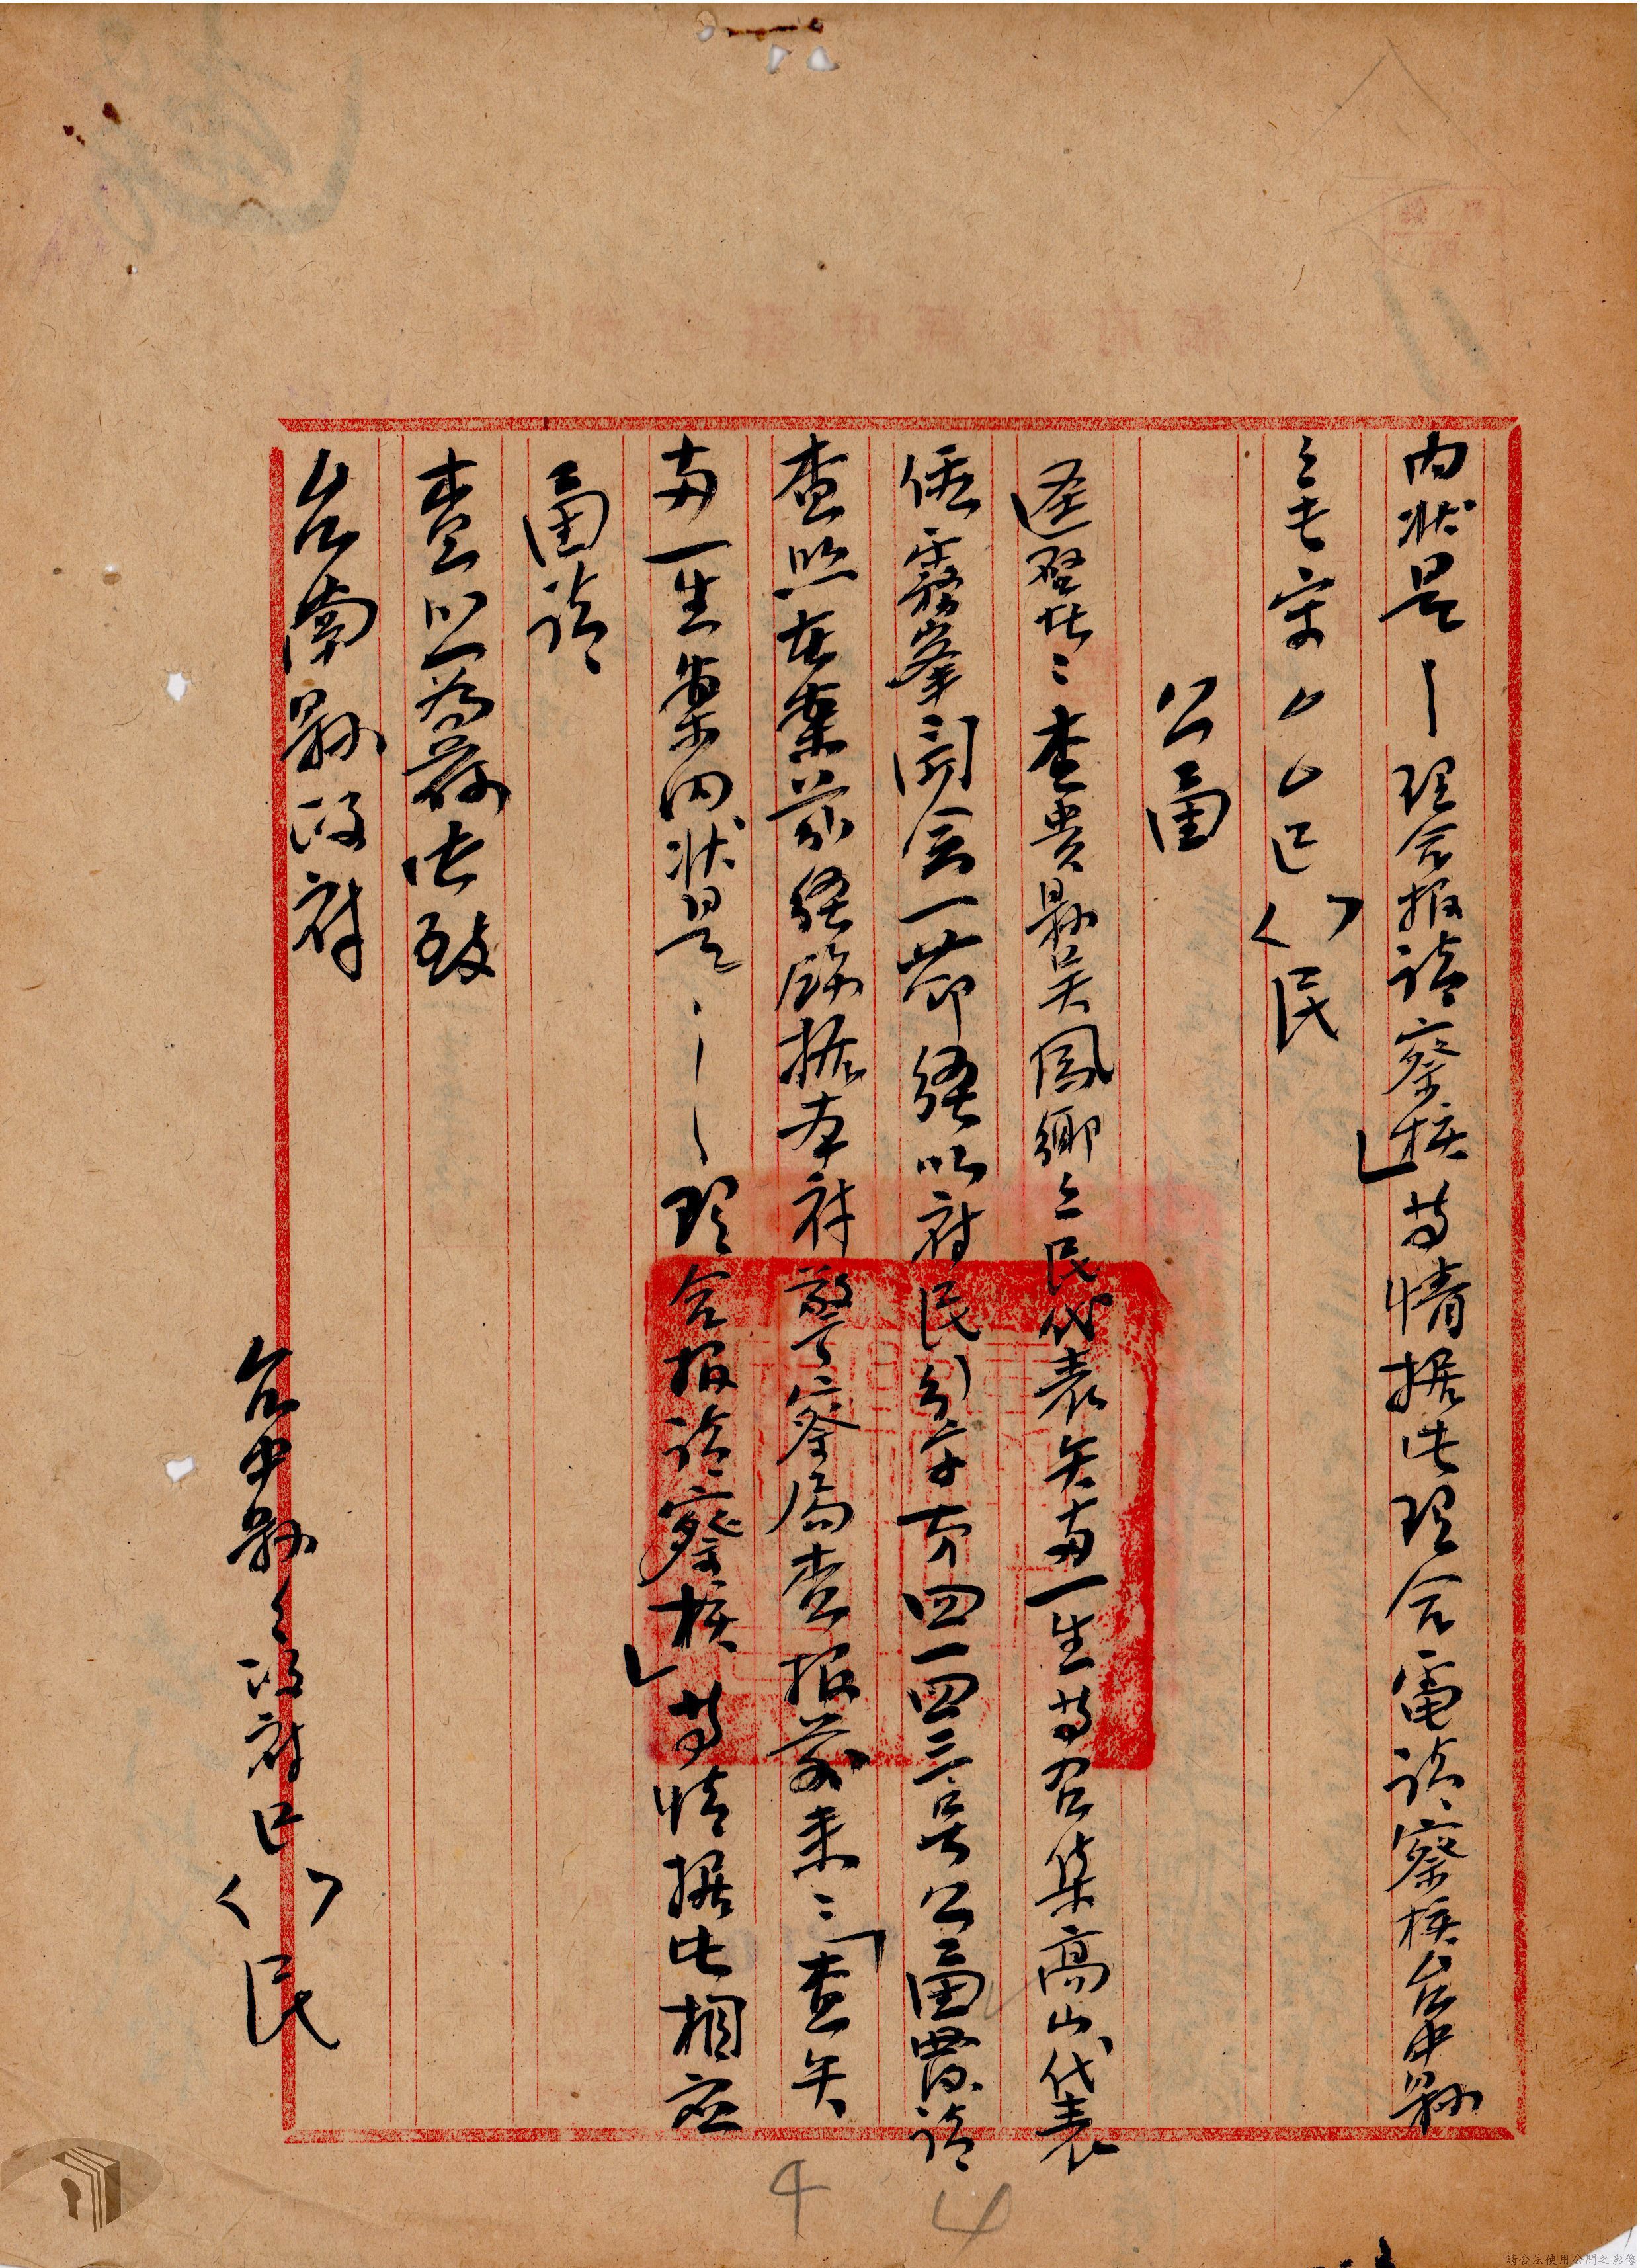 內狀旦—理合報請察核」等情据此理合電請察核台中縣
公函
逕啓者：查貴縣吳鳳鄉之民代表矢多一生等召集高山代表
假霧峯開会一節經以府民字第四一四三号公函覆請
查照在案茲經飭据本府警察局查報前来：「查矢
多一生案內狀旦———理合報請察核」等情据此相应
函請
查照為荷此致
台南縣政府
台中縣政府〈〉民
請合法使用公開之影像